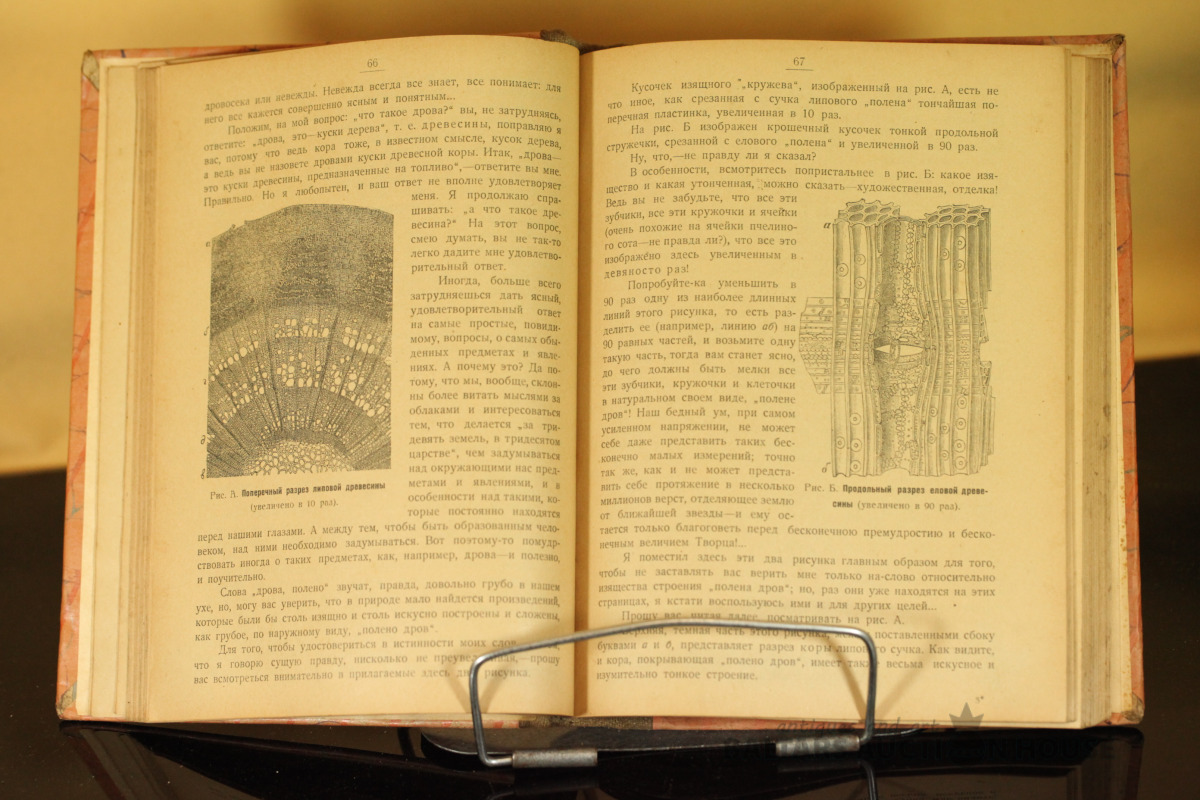 66
дровосека или невежды. Невежда всегда все знает, все понимает: для
него все кажется совершенно ясным и понятным...
Положим, на мой вопрос: „что такое дрова?“ вы, не затрудняясь,
ответите: „дрова, это—куски дерева“, т. е. древесины, поправляю я
вас, потому что ведь кора тоже, в известном смысле, кусок дерева,
а ведь вы не назовете дровами куски древесной коры. Итак, „дрова—
это куски древесины, предназначенные на топливо“,—ответите вы мне.
Правильно. Но я любопытен, и ваш ответ не вполне удовлетворяет
меня. Я продолжаю спра-
шивать: „а что такое дре-
весина?“ На этот вопрос,
смею думать, вы не так-то
легко дадите мне удовлетво-
рительный ответ.
Иногда, больше всего
затрудняешься дать ясный,
удовлетворительный ответ
на самые простые, повиди-
мому, вопросы, о самых обы-
денных предметах и явле-
ниях. А почему это? Да по-
тому, что мы, вообще, склон-
ны более витать мыслями за
облаками и интересоваться
тем, что делается „за три-
девять земель, в тридесятом
царстве“, чем задумываться
над окружающими нас пред-
метами и явлениями, и в
особенности над такими, ко-
торые постоянно находятся
Рис. А. Поперечный разрез липовой древесины
(увеличено в 10 раз).
перед вашими глазами. А между тем, чтобы быть образованным чело-
веком, над ними необходимо задумываться. Вот поэтому-то помудр-
ствовать иногда о таких предметах, как, например, дрова—и полезно,
и поучительно.
Слова „дрова, полено“ звучат, правда, довольно грубо в нашем
ухе, но, могу вас уверить, что в природе мало найдется произведений,
которые были бы столь изящно и столь искусно построены и сложены,
как грубое, по наружному виду, „полено дров“.
Для того, чтобы удостовериться в истинности моих слов
что я говорю сущую правду, нисколько не преувеличивая,—прошу
вас всмотреться внимательно в прилагаемые здесь два рисунка.
67
Кусочек изящного „кружева“, изображенный на рис. А, есть не
что иное, как срезанная с сучка липового „полена“ тончайшая по-
перечная пластинка, увеличенная в 10 раз.
На рис. Б изображен крошечный кусочек тонкой продольной
стружечки, срезанной с елового „полена“ и увеличенной в 90 раз.
Ну, что,—не правду ли я сказал?
В особенности, всмотритесь попристальнее в рис. Б: какое изя-
щество и какая утонченная, можно сказать—художественная, отделка!
Ведь вы не забудьте, что все эти
зубчики, все эти кружочки и ячейки
(очень похожие на ячейки пчелино-
го сота—не правда ли?), что все это
изображено здесь увеличенным в
девяносто раз!
Попробуйте-ка уменьшить в
90 раз одну из наиболее длинных
линий этого рисунка, то есть раз-
делить ее (например, линию аб) на
90 равных частей, и возьмите одну
такую часть, тогда вам станет ясно,
до чего должны быть мелки все
эти зубчики, кружочки и клеточки
в натуральном своем виде, „полене
дров“! Наш бедный ум, при самом
усиленном напряжении, не может
себе даже представить таких бес-
конечно малых измерений; точно
так же, как и не может предста-
вить себе протяжение в несколько
миллионов верст, отделяющее землю
от ближайшей звезды—и ему ос-
а
б
Рис. Б. Продольный разрез еловой древе-
сины (увеличено в 90 раз).
тается только благоговеть перед бесконечною премудростию и беско-
нечным величием Творца!...
Я поместил здесь эти два рисунка главным образом для того,
чтобы не заставлять вас верить мне только на-слово относительно
изящества строения „полена дров“; но, раз они уже находятся на этих
страницах, я кстати воспользуюсь ими и для других целей...
Прошу вас, читая далее, посматривать на рис. А.
Верхняя, темная часть этого рисунка, поставленными сбоку
буквами а и б, представляет разрез коры липового сучка. Как видите,
и кора, покрывающая „полено дров“, имеет также весьма искусное и
изумительно тонкое строение.